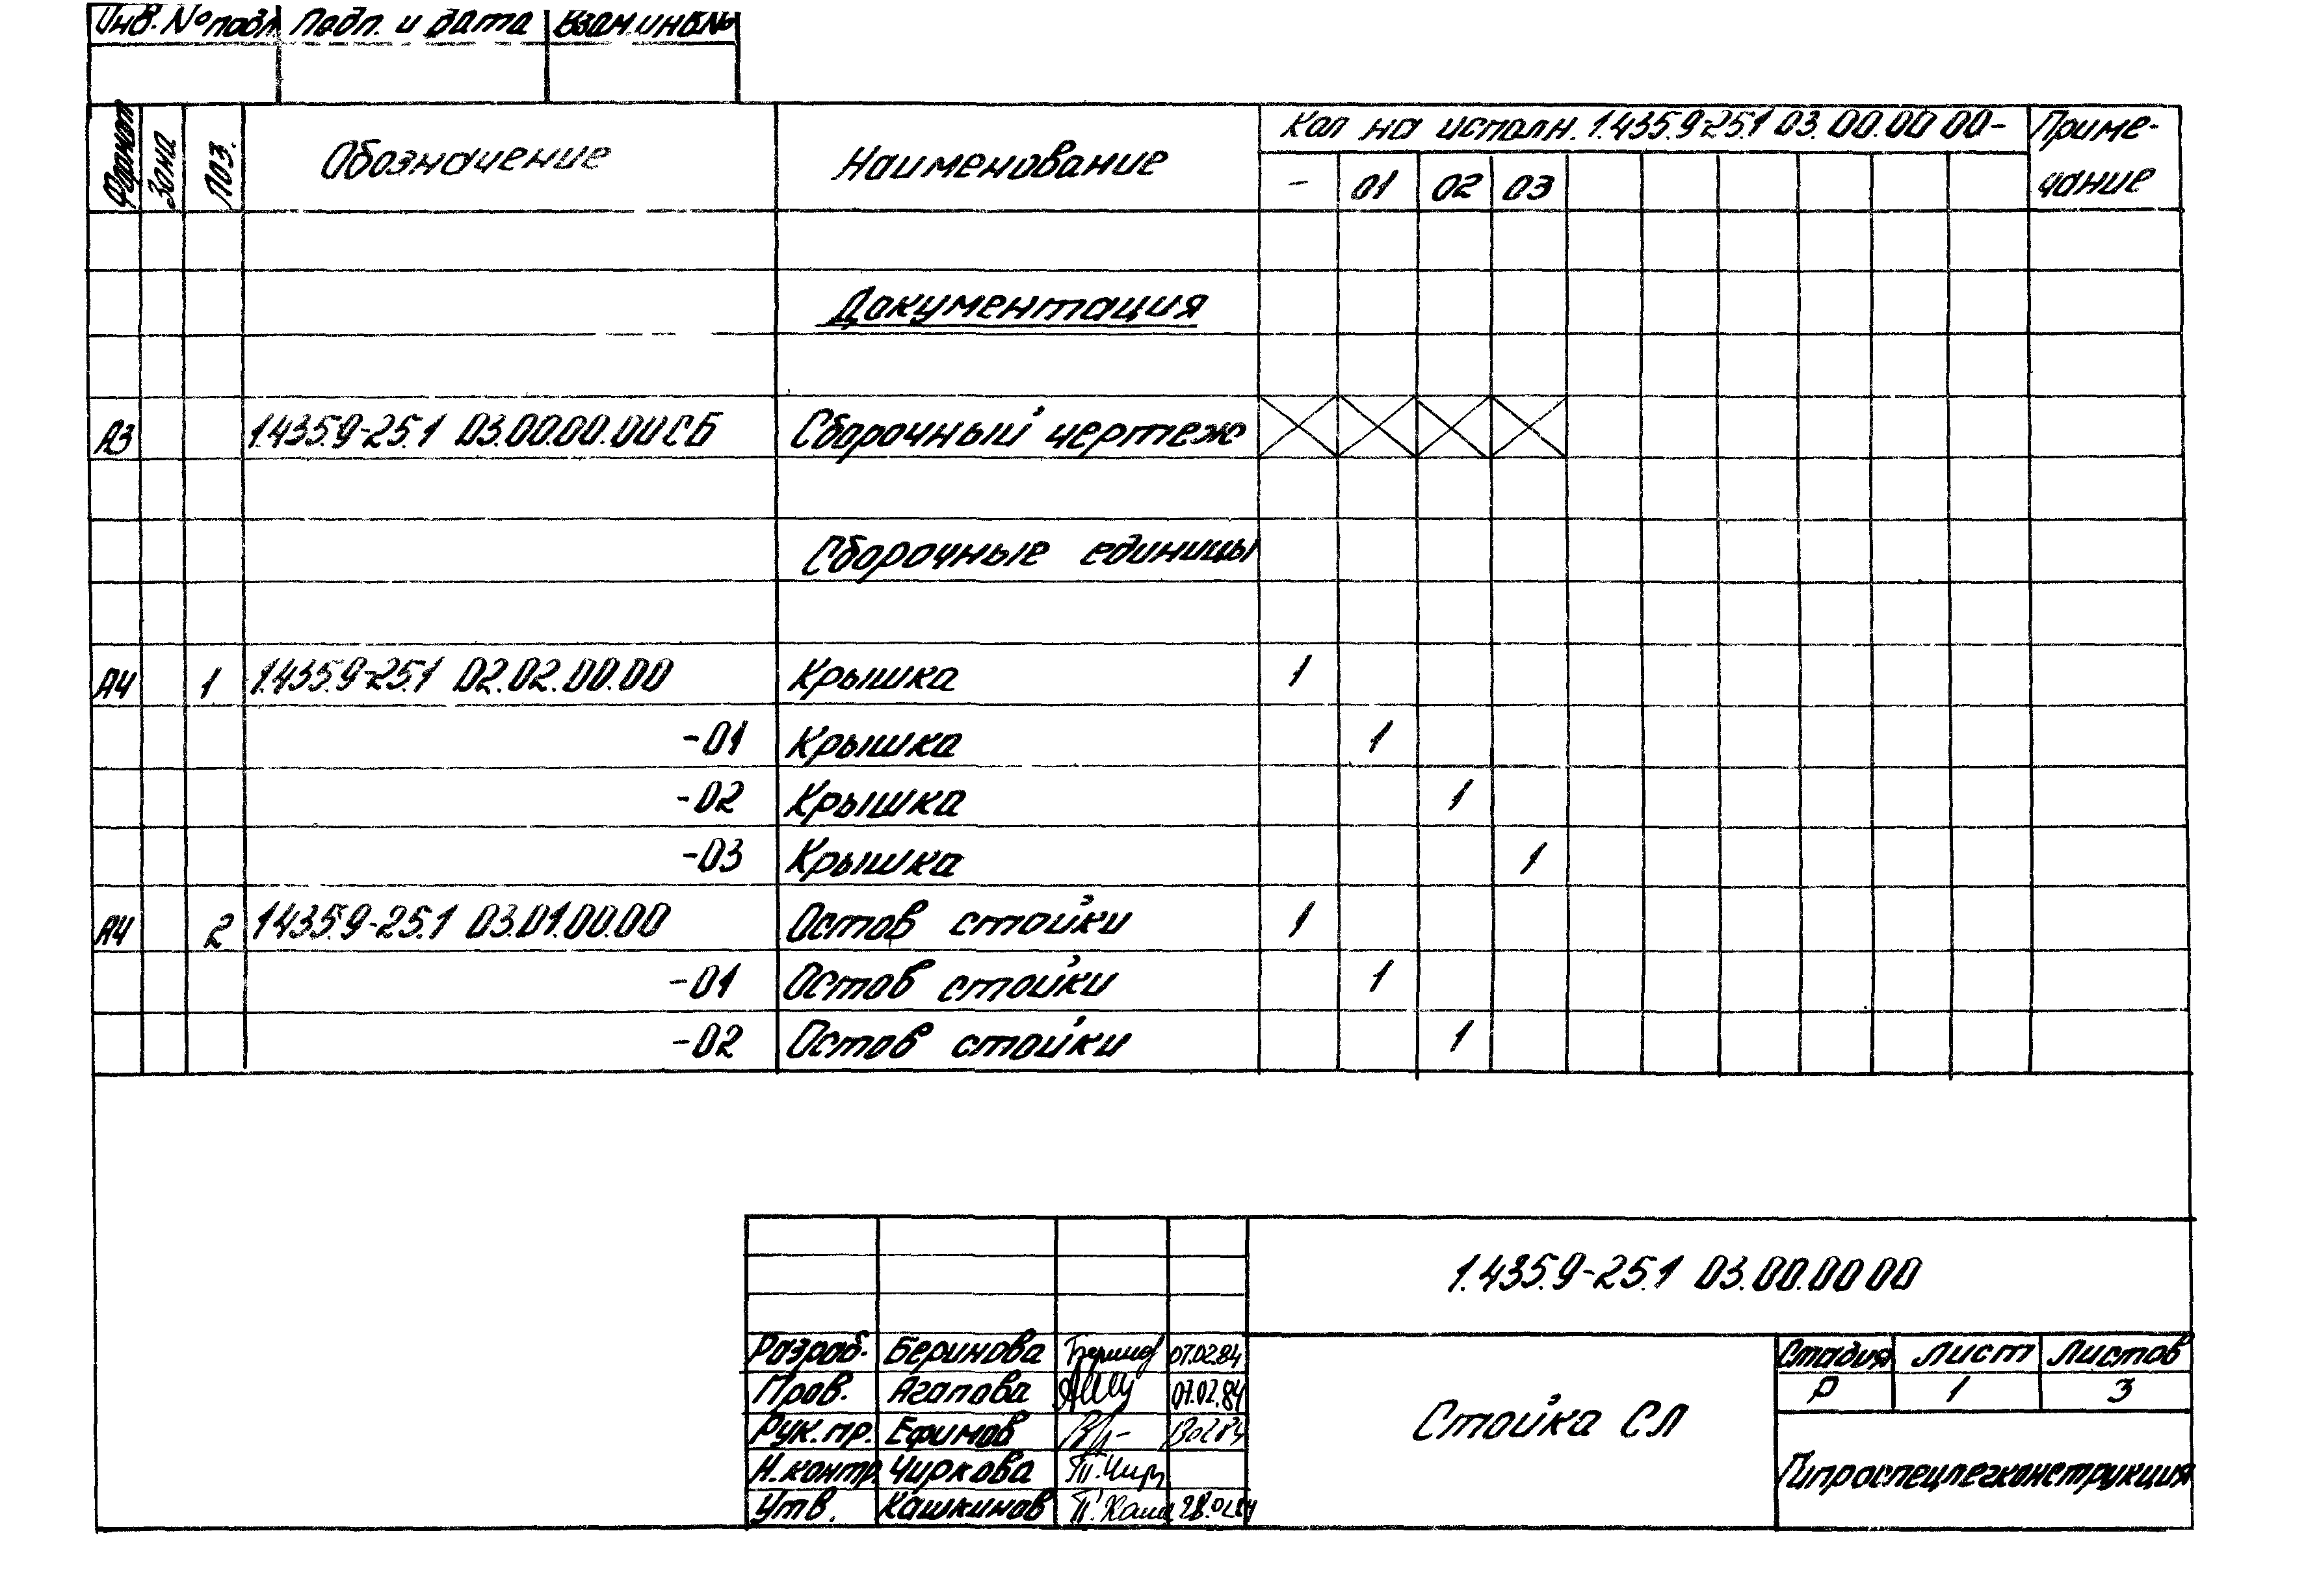 Инв. № подл Подп. и дата Взам инв №
Формат Зона Поз. Обозначение Наименование Кол на исполн. 1.435.9-25.1 03.00.00 00- Приме-
- 01 02 03 чание
Документация
А3 1.435.9-25.1 03.00.00.00СБ Сборочный чертеж
Сборочные единицы
А4 1 1.435.9-25.1 02.02.00.00 Крышка 1
-01 Крышка 1
-02 Крышка 1
-03 Крышка 1
А4 2 1.435.9-25.1 03.01.00.00 Остов стойки 1
-01 Остов стойки 1
-02 Остов стойки 1
1.435.9-25.1 03.00.00 00
Разраб. Беринова 07.02.84
Пров. Агапова 07.02.84
Рук. пр. Ефимов
Н. контр. Чиркова
Утв. Кашкинов 28.02.84
Стойка СЛ
Стадия Лист Листов
Р 1 3
Гипроспецлегконструкция